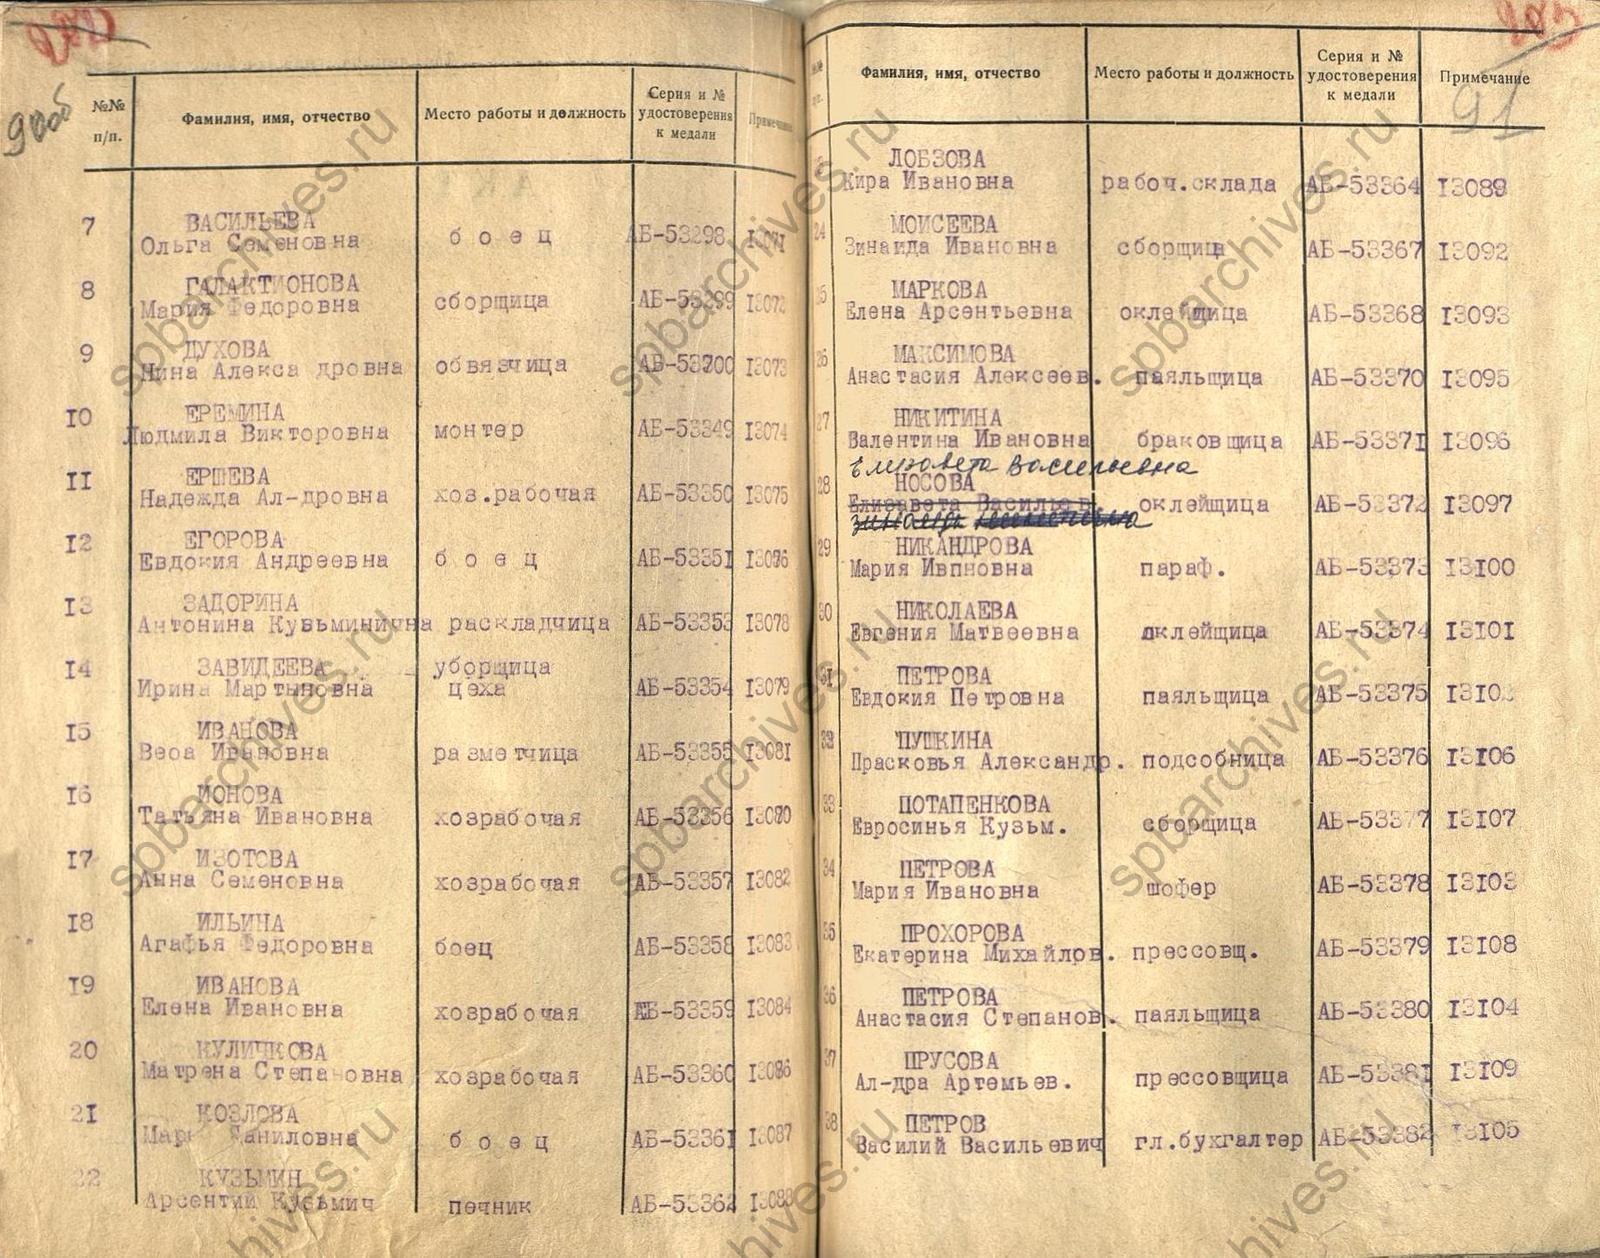 90об
№№ п/п.
Фамилия, имя, отчество
Место работы и должность
Серия и № удостоверения к медали
Примечание
7 ВАСИЛЬЕВА
Ольга Семеновна б о е ц АБ-53298 13071
8 ГАЛАКТИОНОВА
Мария Федоровна сборщица АБ-53299 13072
9 ДУХОВА
Нина Алекса дровна обвязчица АБ-53200 13073
10 ЕРЕМИНА
Людмила Викторовна монтер АБ-53349 13074
11 ЕРШЕВА
Надежда Ал-дровна хоз.рабочая АБ-53350 13075
12 ЕГОРОВА
Евдокия Андреевна б о е ц АБ-53351 13076
13 ЗАДОРИНА
Антонина Кузьминична раскладчица АБ-53353 13078
14 ЗАВИДЕЕВА уборщица
Ирина Мартыновна цеха АБ-53354 13079
15 ИВАНОВА
Вера Ивановна разметчица АБ-53355 13081
16 ИОНОВА
Татьяна Ивановна хозрабочая АБ-53356 13080
17 ИЗОТОВА
Анна Семеновна хозрабочая АБ-53357 13082
18 ИЛЬИНА
Агафья Федоровна боец АБ-53358 13083
19 ИВАНОВА
Елена Ивановна хозрабочая АБ-53359 13084
20 КУЛИЧКОВА
Матрена Степановна хозрабочая АБ-53360 13086
21 КОЗЛОВА
Мари Даниловна б о е ц АБ-53361 13087
22 КУЗЬМИН
Арсентий Кузьмич печник АБ-53362 13088
91
Фамилия, имя, отчество
Место работы и должность
Серия и № удостоверения к медали
Примечание
ЛОБЗОВА
Кира Ивановна рабоч.склада АБ-53364 13089
24 МОИСЕЕВА
Зинаида Ивановна сборщица АБ-53367 13092
25 МАРКОВА
Елена Арсентьевна оклейщица АБ-53368 13093
26 МАКСИМОВА
Анастасия Алексеев. паяльщица АБ-53370 13095
27 НИКИТИНА
Валентина Ивановна браковщица АБ-53371 13096
Елизавета Васильевна
28 НОСОВА
Елизавета Васильев. оклейщица АБ-53372 13097
29 НИКАНДРОВА
Мария Ивпновна параф. АБ-53373 13100
30 НИКОЛАЕВА
Евгения Матвеевна оклейщица АБ-53374 13101
31 ПЕТРОВА
Евдокия Петровна паяльщица АБ-53375
32 ПУШКИНА
Прасковья Александр. подсобница АБ-53376 13106
33 ПОТАПЕНКОВА
Евросинья Кузьм. сборщица АБ-53377 13107
34 ПЕТРОВА
Мария Ивановна шофер АБ-53378 13103
35 ПРОХОРОВА
Екатерина Михайлов. прессовщ. АБ-53379 13108
36 ПЕТРОВА
Анастасия Степанов. паяльщица АБ-53380 13104
37 ПРУСОВА
Ал-дра Артемьев. прессовщица АБ-53381 13109
38 ПЕТРОВ
Василий Васильевич гл.бухгалтер АБ-53382 13105
spbarchives.ru
spbarchives.ru
spbarchives.ru
spbarchives.ru
spbarchives.ru
spbarchives.ru